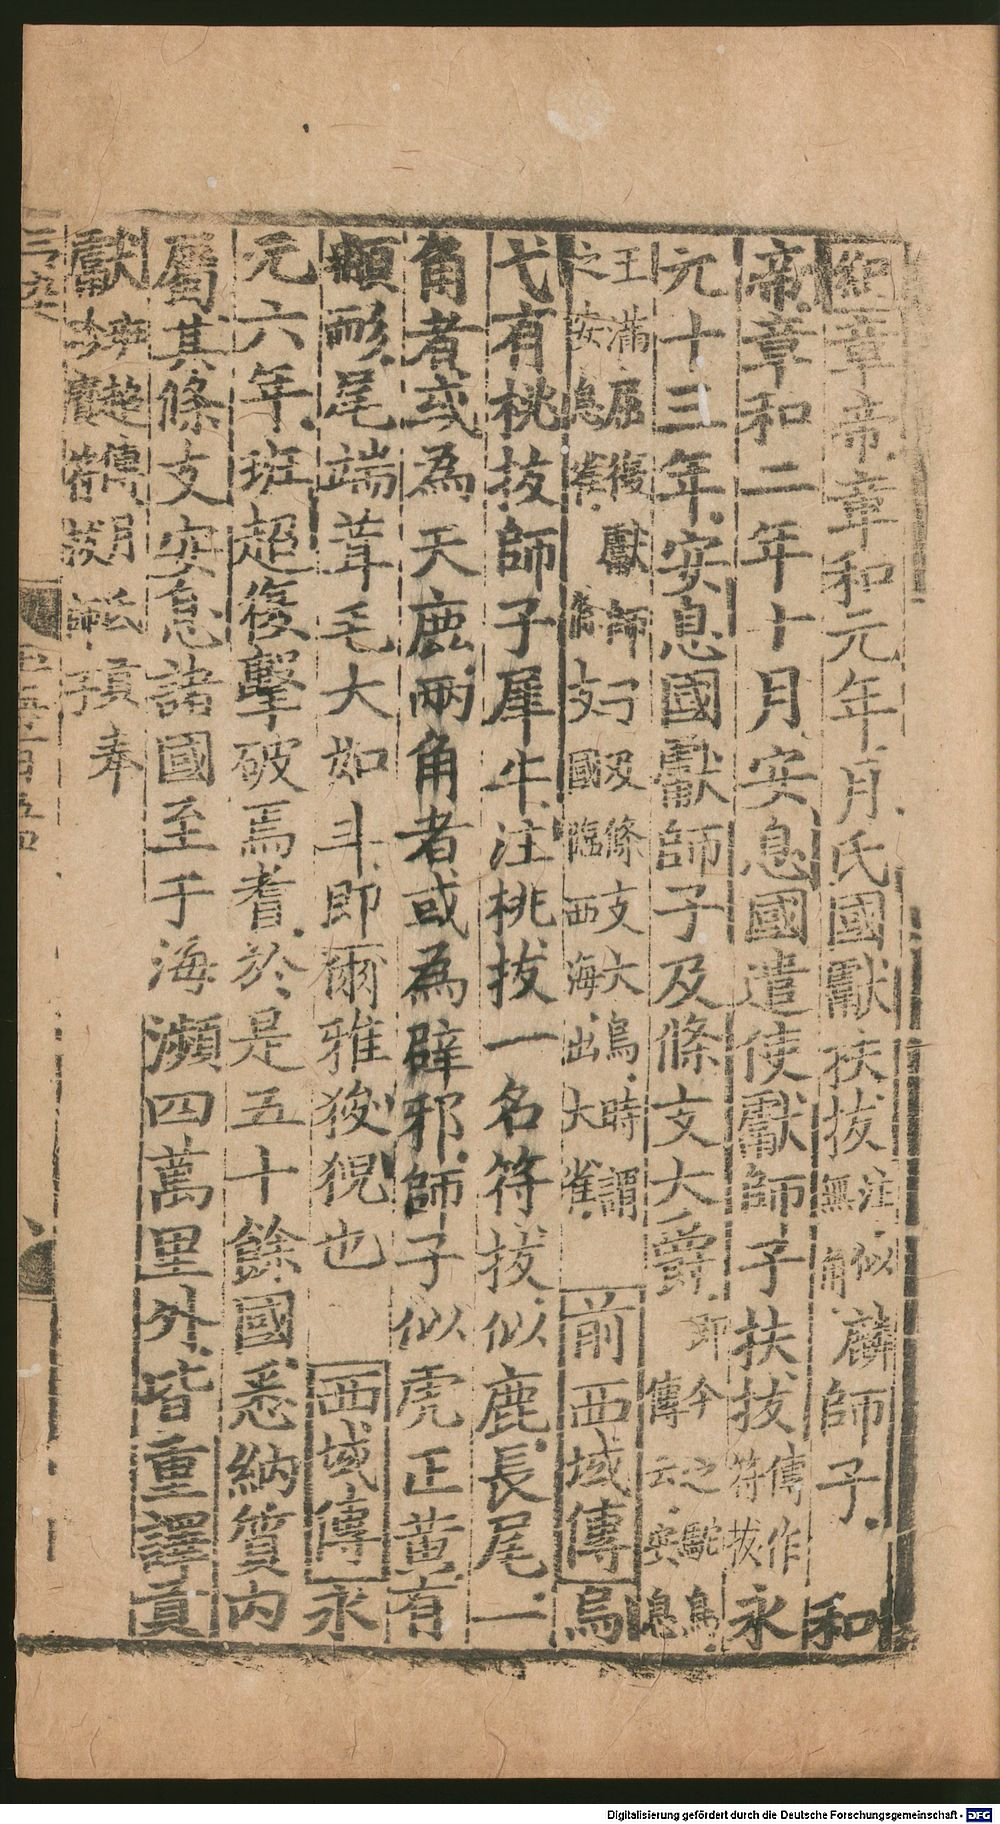 紀章帝章和元年月氏國獻扶拔注似麟無角師子 和
帝章和二年十月安息國遣使獻師子扶拔傳作符拔永
元十三年安息國獻師子及條支大爵即今之駝鳥傳云安息
王滿屈復獻師子及條支大鳥時謂之安息雀條支國臨西海出大雀 前西域傳烏
弋有桃拔師子犀牛注桃拔一名符拔似鹿長尾一
角者或為天鹿兩角者或為辟邪師子似虎正黃有
耏尾端茸毛大如斗即爾雅狻猊也 西域傳永
元六年班超復擊破焉耆於是五十餘國悉納質內
屬其條支安息諸國至于海瀕四萬里外皆重譯貢
獻班超傳月氏貢奉珍寶符拔師子
Digitalisierung gefördert durch die Deutsche Forschungsgemeinschaft - DFG